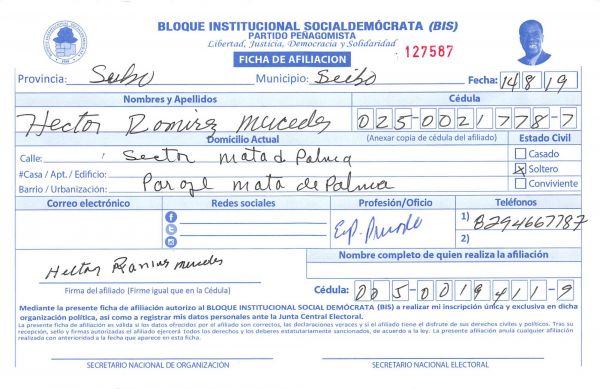 BLOQUE INSTITUCIONAL SOCIALDEMÓCRATA (BIS)
PARTIDO PEÑAGOMISTA
Libertad, Justicia, Democracia y Solidaridad
FICHA DE AFILIACION
127587
Provincia: Seibo Municipio: Seibo Fecha: 14 8 19
Nombres y Apellidos Cédula
Hector Ramirez Mercedes 025-0021778-7
Domicilio Actual (Anexar copia de cédula del afiliado) Estado Civil
Calle: Sector Mata de Palma
Casado
#Casa / Apt. / Edificio:
Soltero
Barrio / Urbanización: Paraje Mata de Palma
Conviviente
Correo electrónico Redes sociales Profesión/Oficio Teléfonos
1) 8294667787
E.P. Privado
2)
Nombre completo de quien realiza la afiliación
Hector Ramirez Mercedes
Firma del afiliado (Firme igual que en la Cédula)
Cédula: 025-0019411-9
Mediante la presente ficha de afiliación autorizo al BLOQUE INSTITUCIONAL SOCIAL DEMÓCRATA (BIS) a realizar mi inscripción única y exclusiva en dicha
organización política, así como a registrar mis datos personales ante la Junta Central Electoral.
La presente ficha de afiliación es valida si los datos ofrecidos por el afiliado son correctos, las declaraciones veraces y si el afiliado tiene el disfrute de sus derechos civiles y políticos. Tras su
recepción, sello y firmas autorizadas el afiliado ejercerá todos los derechos y los deberes estatutariamente sancionados, de acuerdo a la ley. La presente afiliación anula cualquier afiliación
realizada con anterioridad a la fecha que aparece en esta ficha.
SECRETARIO NACIONAL DE ORGANIZACIÓN SECRETARIO NACIONAL ELECTORAL